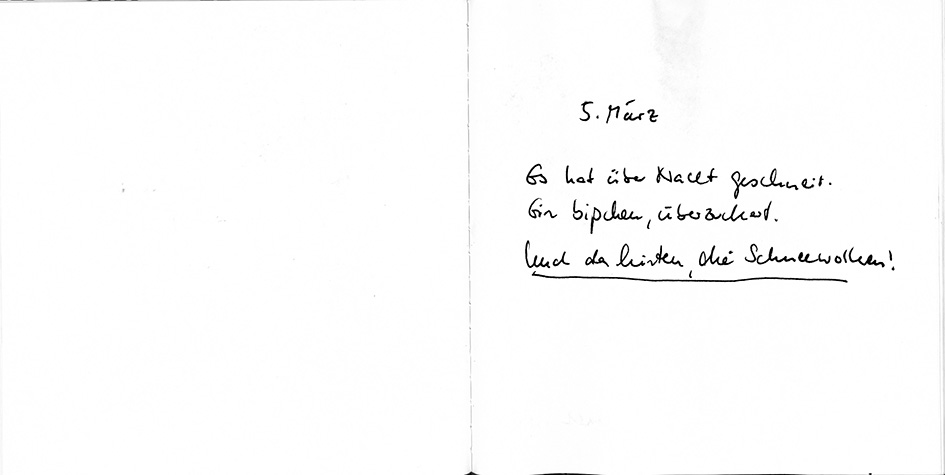 5. März
Es hat über Nacht geschneit.
Ein bißchen, überzuckert.
Und da hinten, die Schneewolken!